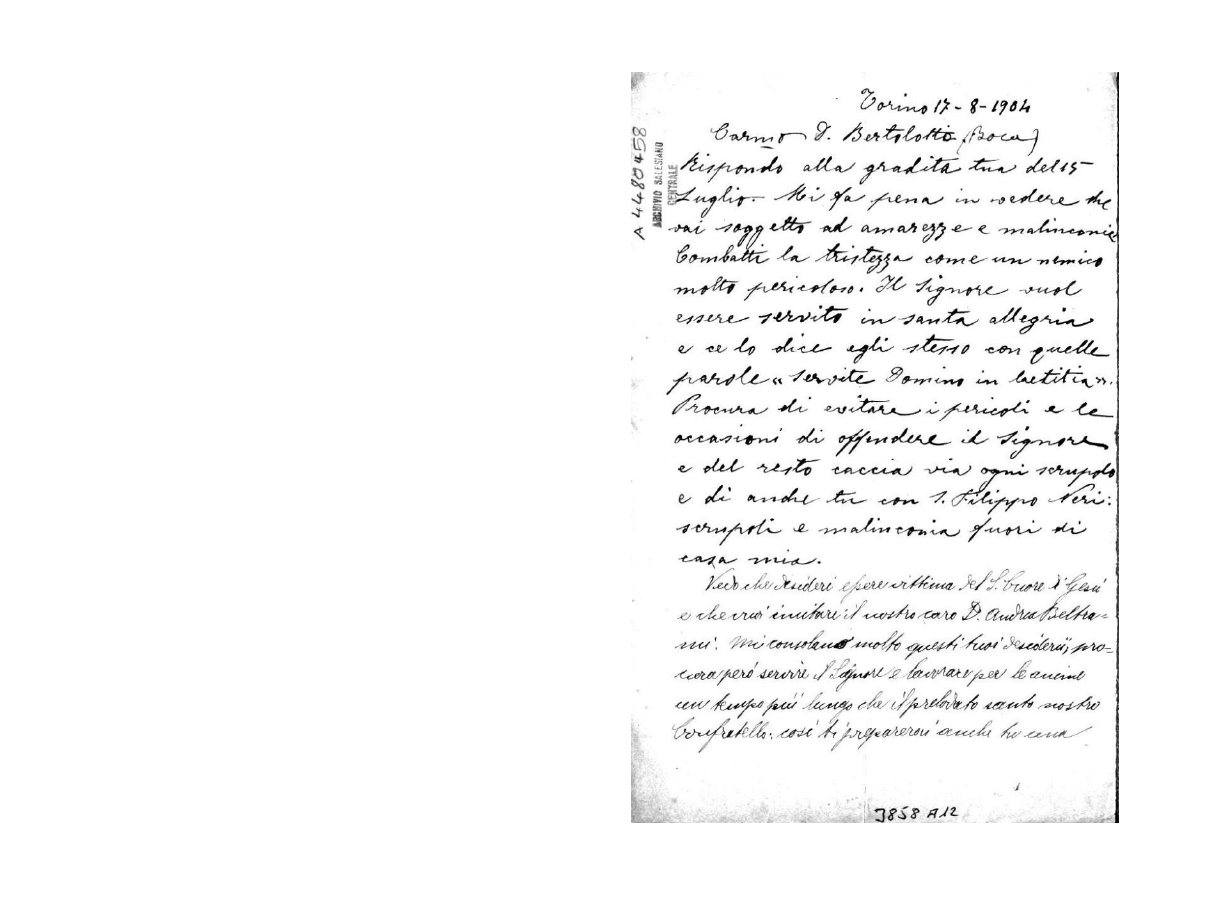 Torino 17-8-1904
Carmo D. Bertolotto (Boca)
Rispondo alla gradita tua del 15
Luglio. Mi fa pena in vedere che
vai soggetto ad amarezze e malinconie
Combatti la tristezza come un nemico
molto pericoloso. Il Signore vuol
essere servito in santa allegria
e ce lo dice egli stesso con quelle
parole « Servite Domino in laetitia ».
Procura di evitare i pericoli e le
occasioni di offendere il Signore
e del resto caccia via ogni scrupolo
e di anche tu con S. Filippo Neri:
scrupoli e malinconia fuori di
casa mia.
Vedo che desideri essere vittima del S. Cuore di Gesù
e che vuoi imitare il nostro caro D. Andrea Beltra=
mi. Mi consolano molto questi tuoi desiderii, pro=
cura però servire il Signore e lavorare per le anime
un tempo più lungo che il prelodato santo nostro
Confratello: così ti preparerai anche tu una
A4480458
ARCHIVIO SALESIANO
CENTRALE
3858 A12